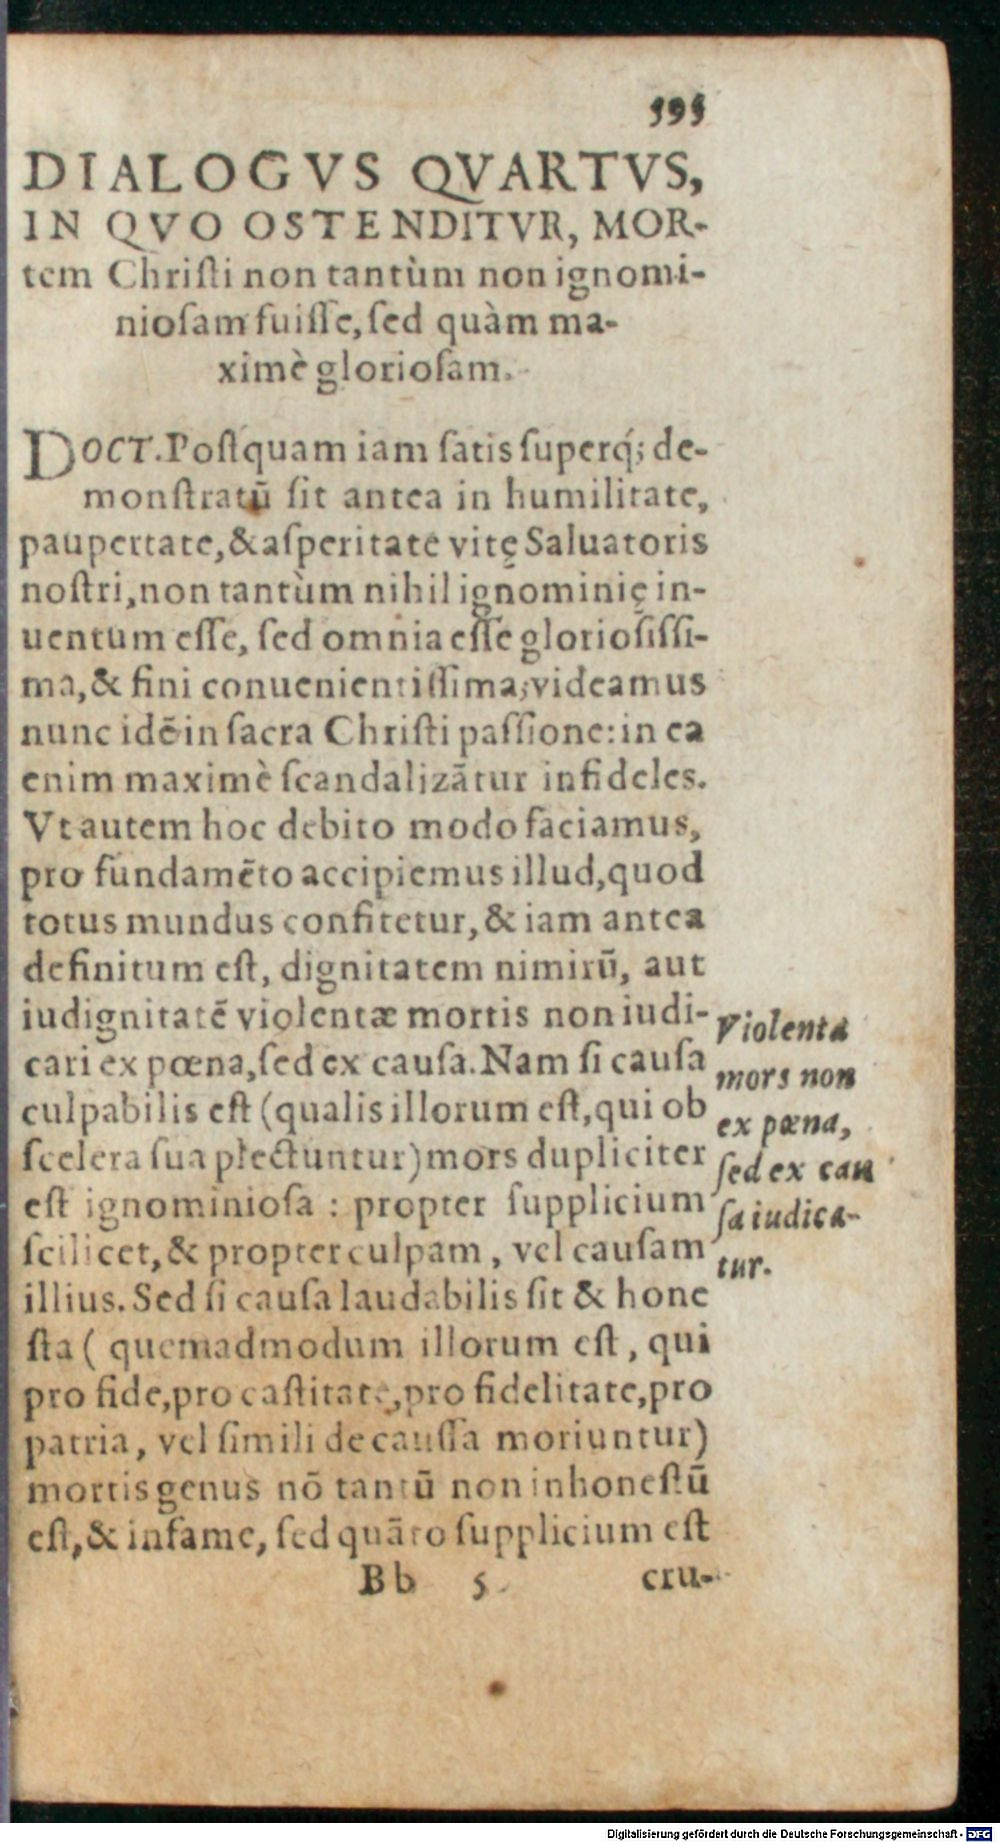 595
DIALOGVS QVARTVS,
IN QVO OSTENDITVR, MOR-
tem Chriſti non tantùm non ignomi-
nioſam fuiſſe, ſed quàm ma-
ximè glorioſam.
DOCT. Poſtquam iam ſatis ſuperq́; de-
monſtratū ſit antea in humilitate,
paupertate, & aſperitate vitę Saluatoris
noſtri, non tantùm nihil ignominię in-
uentum eſſe, ſed omnia eſſe glorioſiſſi-
ma, & fini conuenientiſſima; videamus
nunc idē in ſacra Chriſti paſſione: in ea
enim maximè ſcandalizātur infideles.
Vt autem hoc debito modo faciamus,
pro fundamēto accipiemus illud, quod
totus mundus confitetur, & iam antea
definitum eſt, dignitatem nimirū, aut
iudignitatē violentæ mortis non iudi-
cari ex pœna, ſed ex cauſa. Nam ſi cauſa
culpabilis eſt (qualis illorum eſt, qui ob
ſcelera ſua plectuntur) mors dupliciter
est ignominioſa : propter ſupplicium
ſcilicet, & propter culpam, vel cauſam
illius. Sed ſi cauſa laudabilis ſit & hone
ſta ( quemadmodum illorum eſt, qui
pro fide, pro caſtitate, pro fidelitate, pro
patria, vel ſimili de cauſſa moriuntur)
mortis genus nō tantū non inhoneſtū
eſt, & infame, ſed quāto ſupplicium eſt
Violenta
mors non
ex pœna,
ſed ex cau
ſa iudica-
tur.
Bb 5 cru-
Digitalisierung gefördert durch die Deutsche Forschungsgemeinschaft - DFG